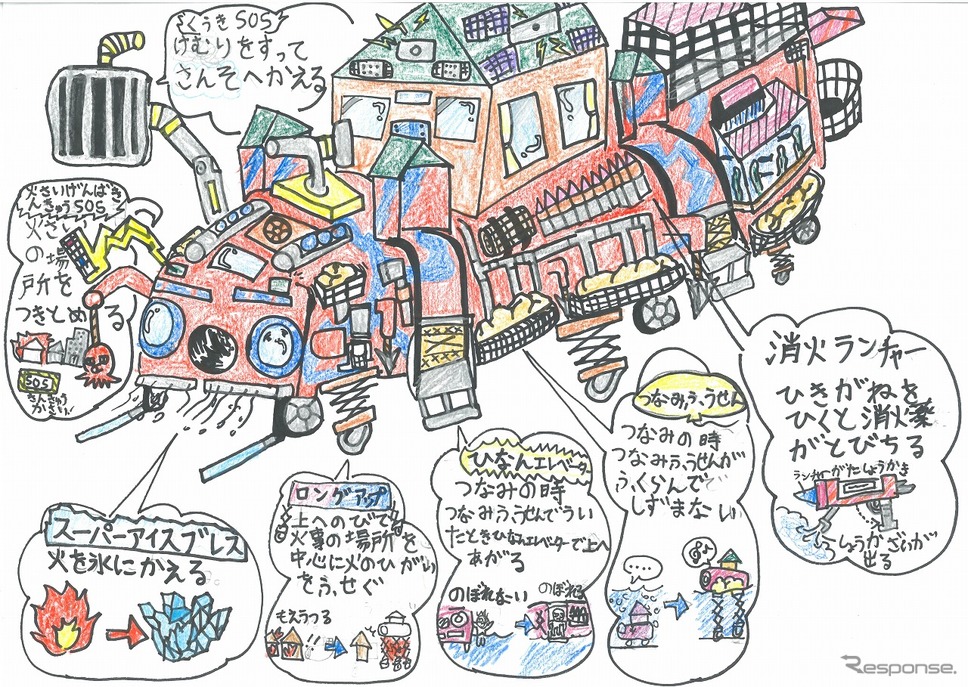 くうきSOS
けむりをすって
さんそへかえる
火さいげんばき
んきゅうSOS
火さい
の場
所を
つきとめる
SOS
きんきゅう
かさい!
スーパーアイスブレス
火を氷にかえる
ロングアップ
上へのびて
火事の場所を
中心に火のひがい
をふせぐ
もえうつる
ひなんエレベーター
つなみの時
つなみふうせんでうい
たときひなんエレベーターで上へ
あがる
のぼれない
のぼれる
つなみふうせん
つなみの時
つなみふうせんが
ふくらんで
しずまない
消火ランチャー
ひきがねを
ひくと消火薬
がとびちる
ランチャーがたしょうかき
しょうかざいが
出る
Response.